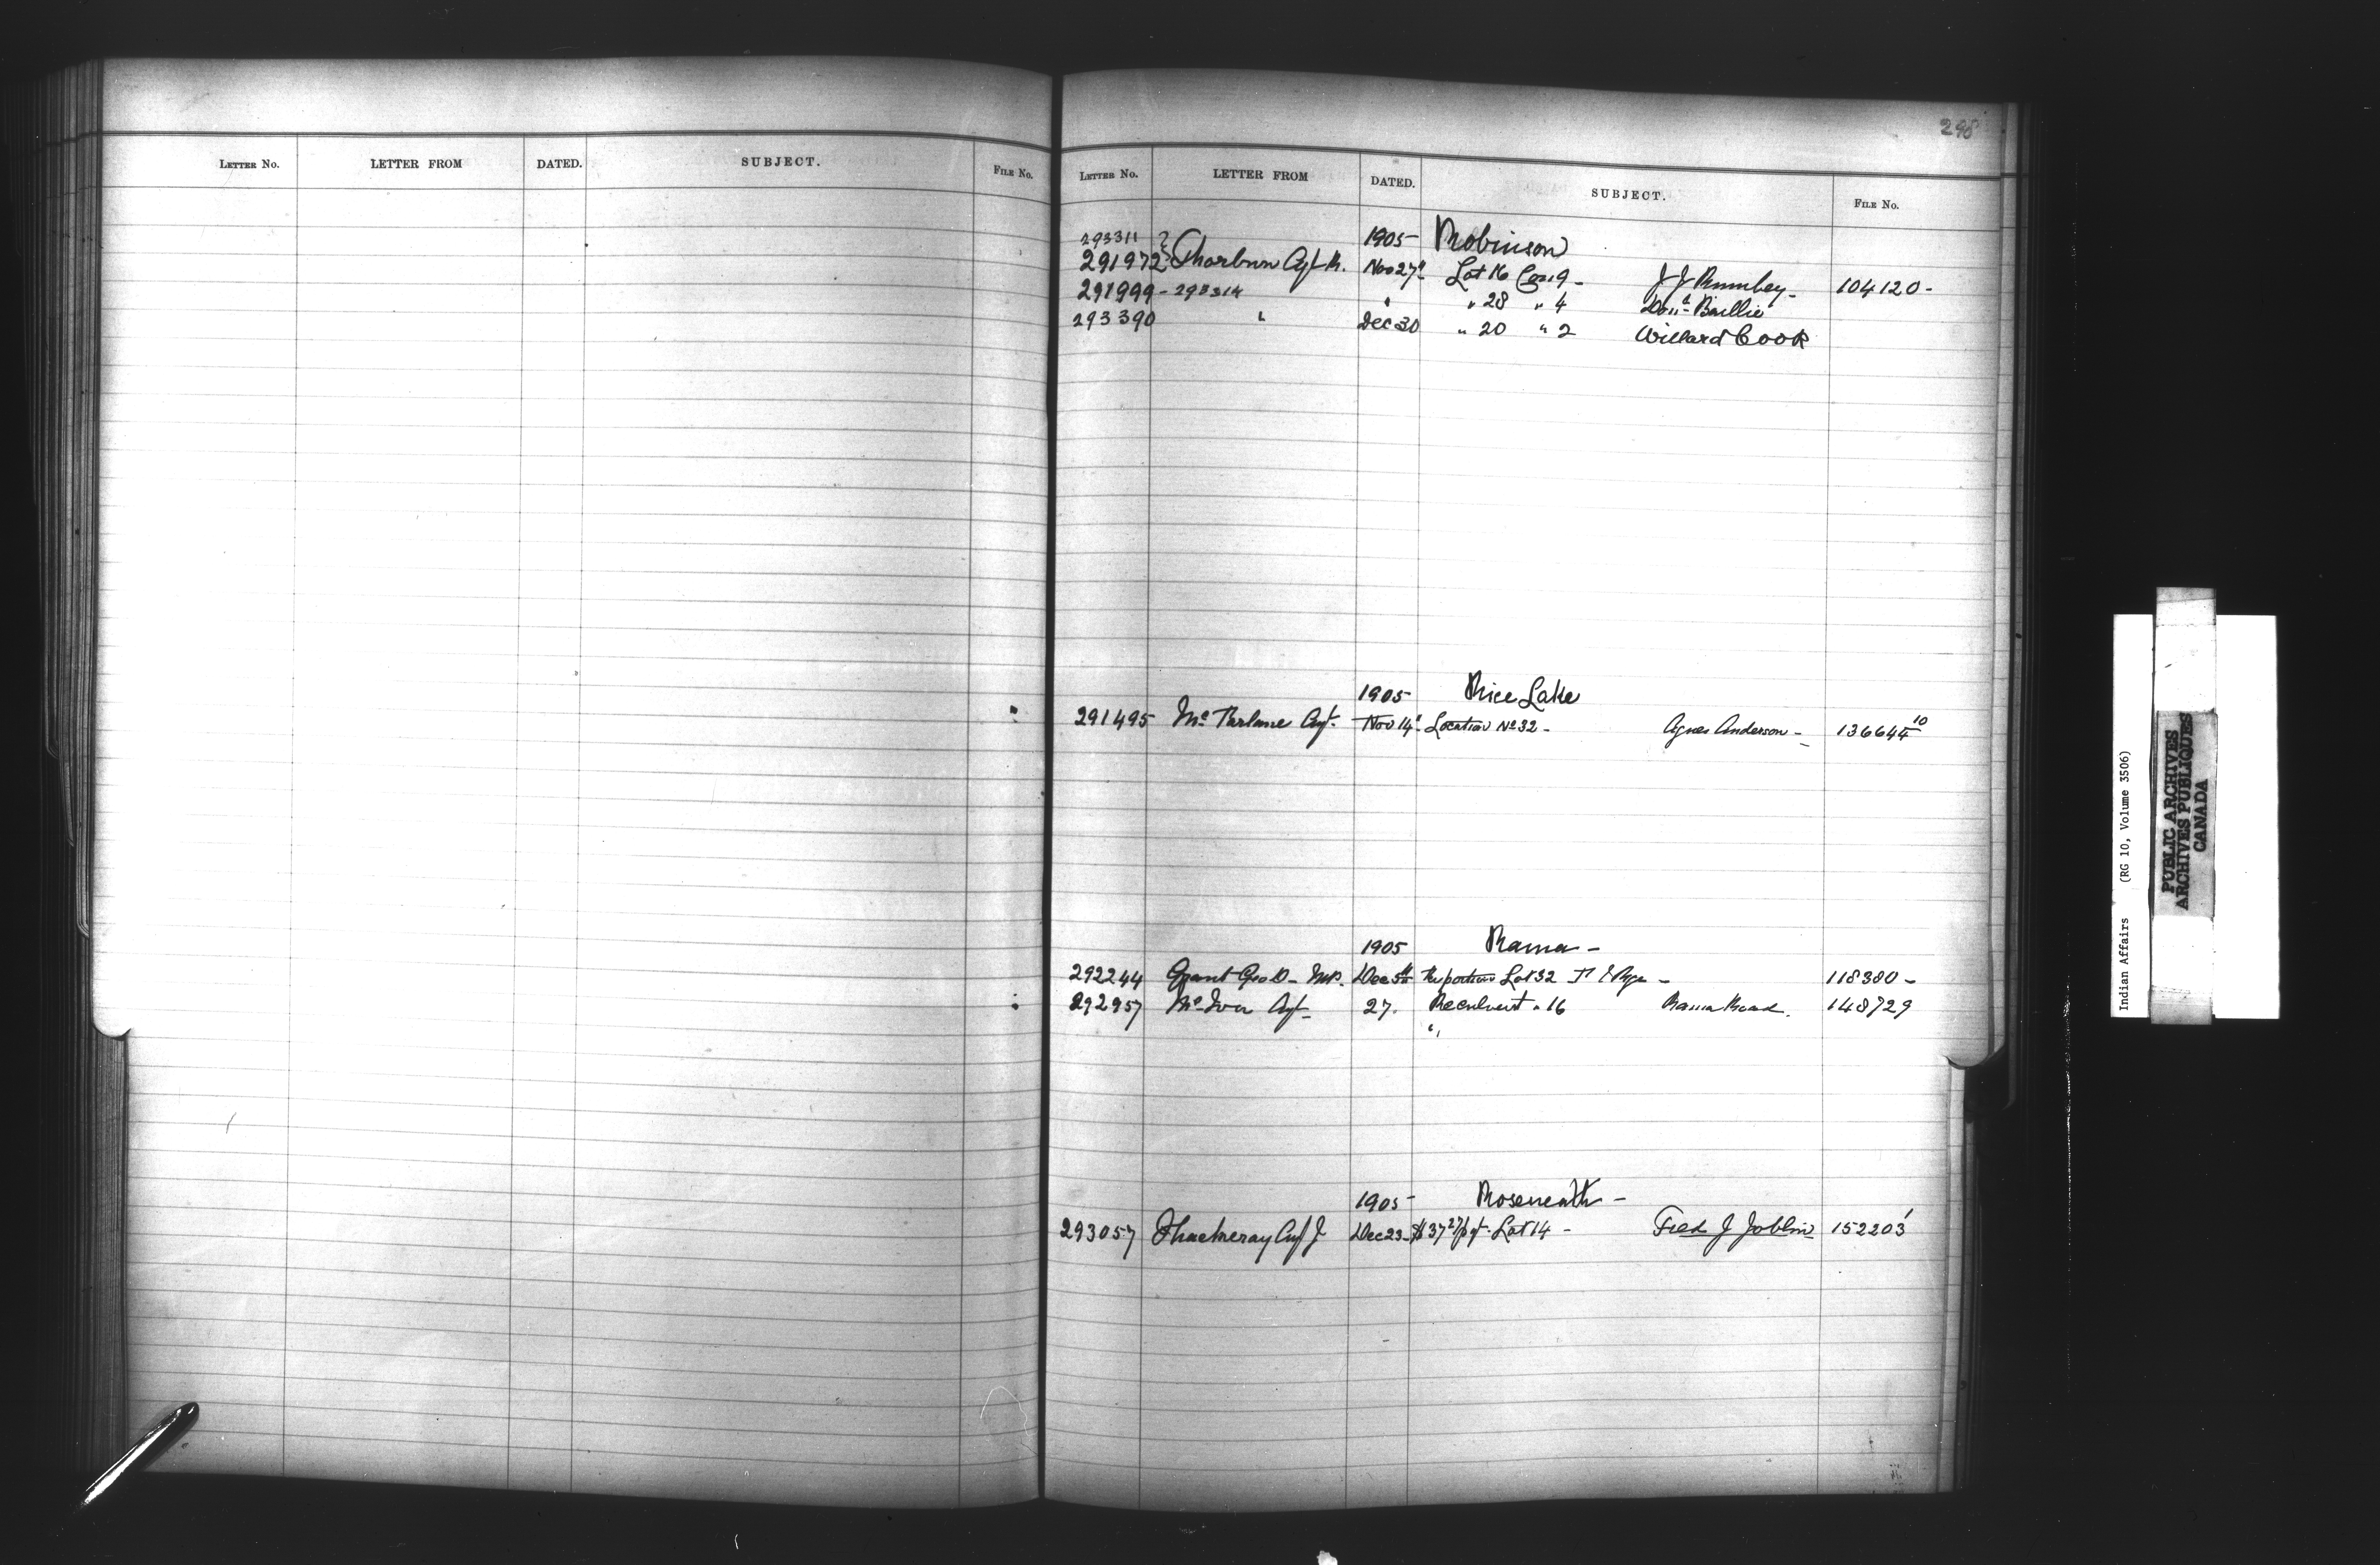 LETTER NO. LETTER FROM DATED. SUBJECT. FILE NO.
298
LETTER NO. LETTER FROM DATED. SUBJECT. FILE NO.
293311 1905 Robinson
291972 Thorburn Agt R. Nov 27 Lot 16 Con 9 - J J Rumley - 104120 -
291999 - 293314 " " 28 " 4 Don Baillie
293390 " Dec 30 " 20 " 2 Willard Cook
1905 Rice Lake
291495 McFarlane Agt. Nov 14 Location No 32 - Agnes Anderson - 136644 10
1905 Rama -
292244 Grant Geo D - M.P. Dec 5th Re portion Lot 32 - 118380 -
292957 McIver Agt - 27. Re culvert " 16 Rama Road. 148729
"
1905 - Roseneath -
293057 Thackeray Agt J Dec 23 - $37 27 pyt - Lot 14 - Fred J Joblin 152203
Indian Affairs (RG 10, Volume 3506)
PUBLIC ARCHIVES
ARCHIVES PUBLIQUES
CANADA